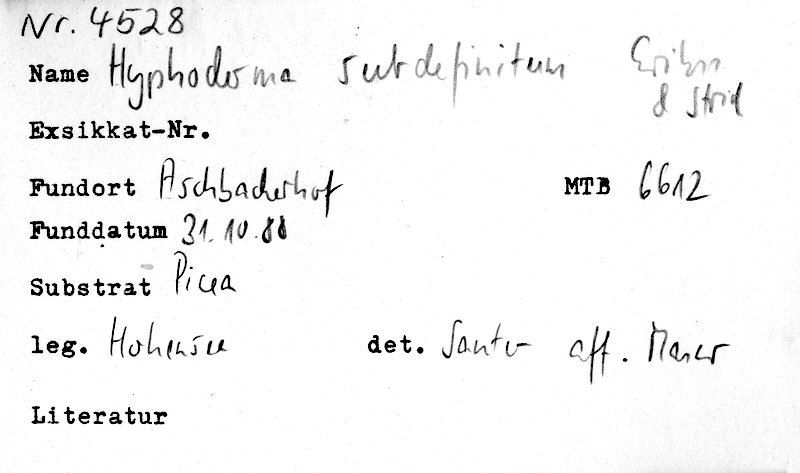 Nr. 4528
Name Hyphoderma subdefinitum Erikss
& Strid
Exsikkat-Nr.
Fundort Aschbacherhof MTB 6612
Funddatum 31.10.88
Substrat Picea
leg. Hohensee det. aff.
Literatur